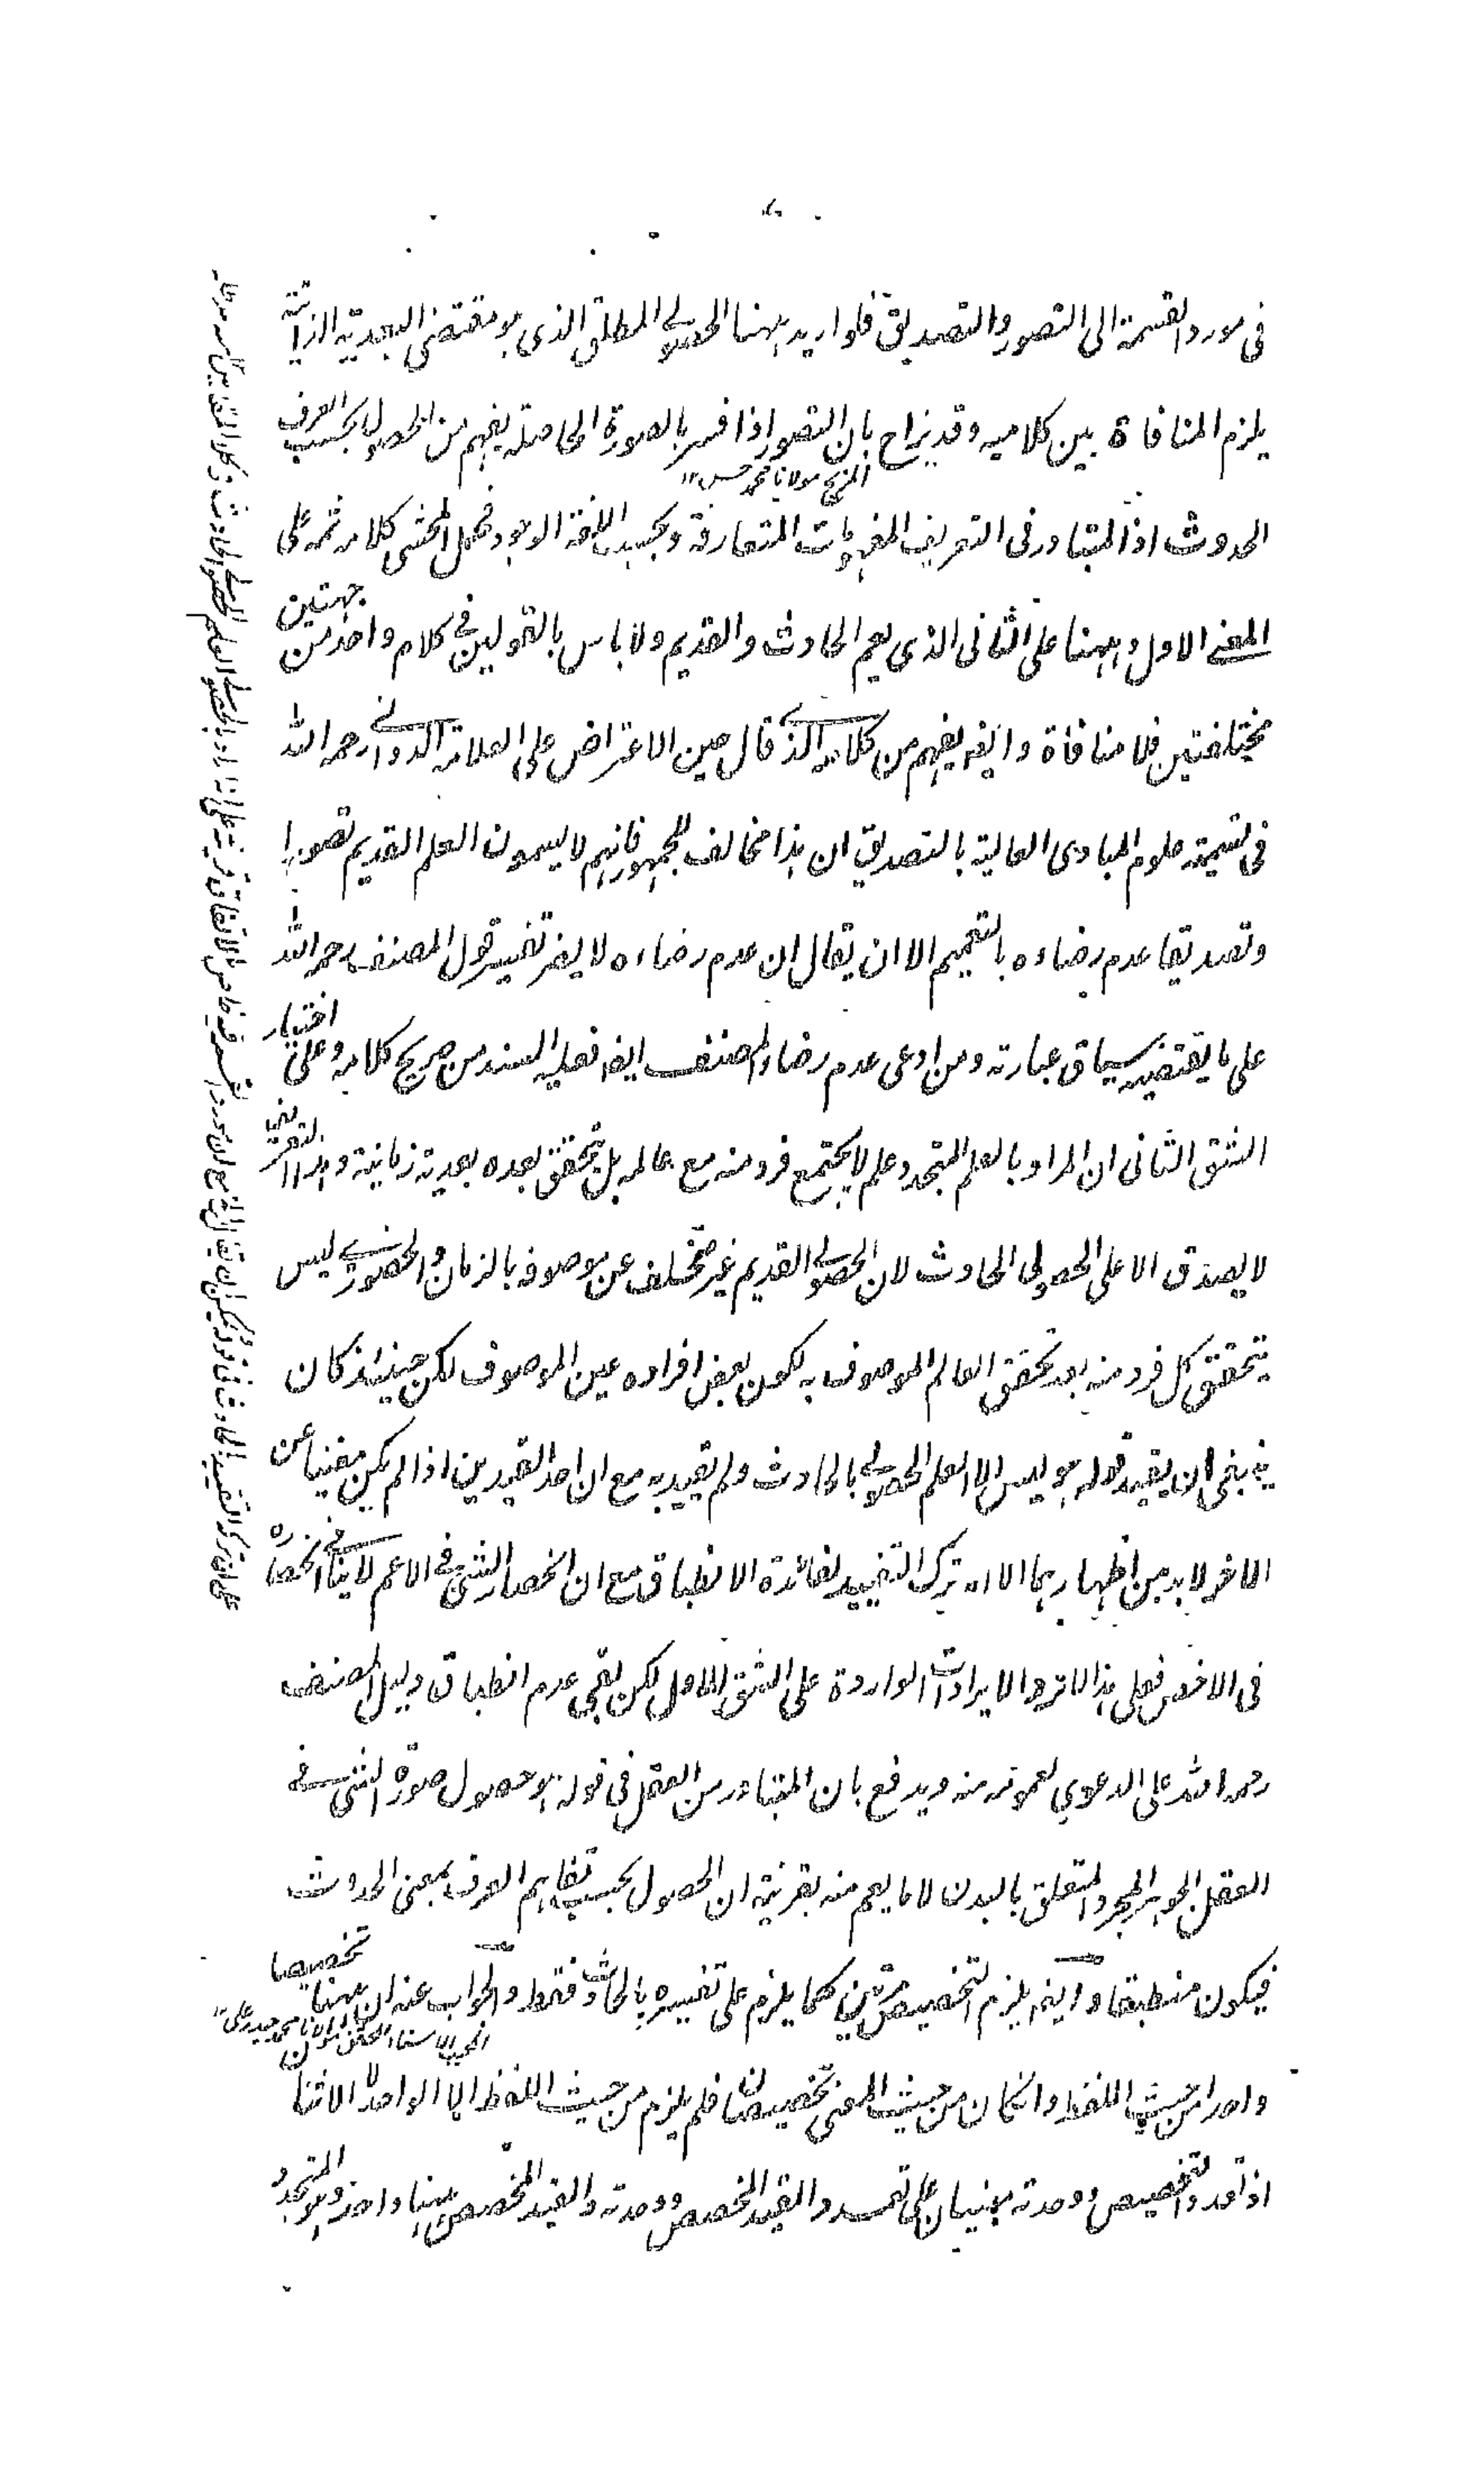 في مورد القسمة الى التصور والتصديق فلو اريد ههنا الحصولي المطلق الذي هو مقتضى البعدية الذاتية
يلزم المنافاة بين كلاميه وقد يزاح بان التصور اذا فسر بالصورة الحاصلة يفهم من الحصول بحسب العرف
المزيح مولانا محمد حسن ١٢
الحدوث اذ المتبادر في التعريف المفهومات المتعارفة وبحسب اللغة الوجود فحمل المحشي كلامه ثمه على
المعنى الاول وههنا على الثاني الذي يعم الحادث والقديم ولا باس بالقولين في كلام واحد من جهتين
مختلفتين فلا منافاة وايضا يفهم من كلامه الذي قال حين الاعتراض على العلامة الدواني رحمه الله
في تسمية علوم المبادي العالية بالتصديق ان هذا مخالف للجمهور فانهم لا يسمون العلم القديم تصورا
وتصديقا عدم رضاءه بالتعميم الا ان يقال ان عدم رضاءه لا يضر تفسير قول المصنف رحمه الله
على ما يقتضيه سياق عبارته ومن ادعى عدم رضاء المصنف ايضا فعليه السند من صريح كلامه وعلى اختيار
الشق الثاني ان المراد بالعلم المتجدد علم لا يجتمع فرد منه مع عالمه بل يتحقق بعده بعدية زمانية وهذا التعريف
لا يصدق الا على الحصولي الحادث لان الحصولي القديم غير متخلف عن موصوفه بالزمان والحضوري ليس
يتحقق كل فرد منه بعد تحقق العالم الموصوف به لكون بعض افراده عين الموصوف لكن حينئذ كان
ينبغي ان يقيد قوله هو ليس الا العلم الحصولي بالحادث ولم يقيد به مع ان احد القيدين اذا لم يكن مغنيا عن
الاخر لا بد من اظهارهما الا انه ترك التقييد لفائدة الانطباق مع ان انحصار الشيء في الاعم لا ينافي انحصاره
في الاخص فعلى هذا لا ترد الايرادات الواردة على الشق الاول لكن بقي عدم انطباق دليل المصنف
رحمه الله على الدعوى لعمومه منه ويدفع بان المتبادر من العقل في قوله هو حصول صورة الشيء في
العقل الجوهر المجرد المتعلق بالبدن لا ما يعم منه بقرينة ان الحصول بحسب تفاهم العرف بمعنى الحدوث
فيكون منطبقا وايضا يلزم التخصيص مرتين كما يلزم على تفسيره بالحادث فقط والجواب عنه ان ههنا تخصيصا
واحدا من حيث اللفظ وانكان من حيث المعنى تخصيصان فلم يلزم من حيث اللفظ الا الواحد لا الاثنان
اذ تعدد التخصيص ووحدته مبنيان على تعدد القيد المخصص ووحدته والقيد المخصص ههنا واحد وهو المتجدد